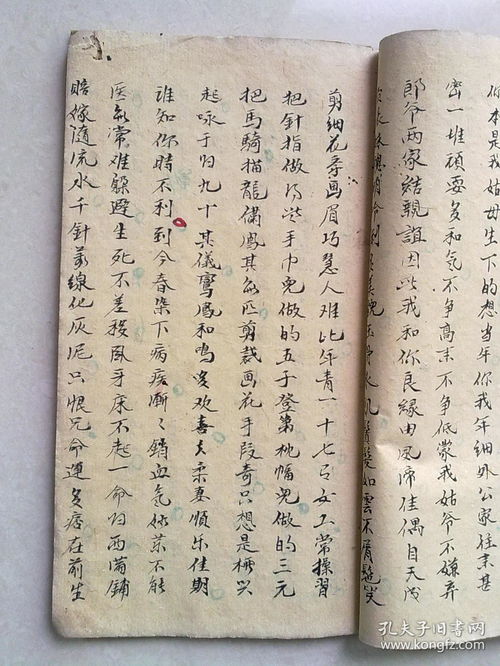 你本是我姑母生下的想当年你我年细外公家往来甚
密一堆顽耍多和气不争高来不争低蒙我姑爷不嫌弃
郎爷两家结亲谊因此我和你良缘由凤帝佳偶自天成
如云不肯
剪细花季画眉巧慧人难比年青一十七日女工常操习
把针指做得些手巾兜做的五子登第枕幅兜做的三元
把马骑描龙绣凤其无匹剪裁画花手段奇只想是椿兴
起咏于归九十其仪鸾凤和鸣多欢喜夫柔妻顺乐佳期
谁知你时不利到今春染下病疾渐〻销血气姑药不能
医无常难躲避生死不差移卧牙床不起一命归西满铺
赔嫁随流水千针万线化灰泥只恨兄命运多痞在前生
孔夫子旧书网
www.kongfz.com